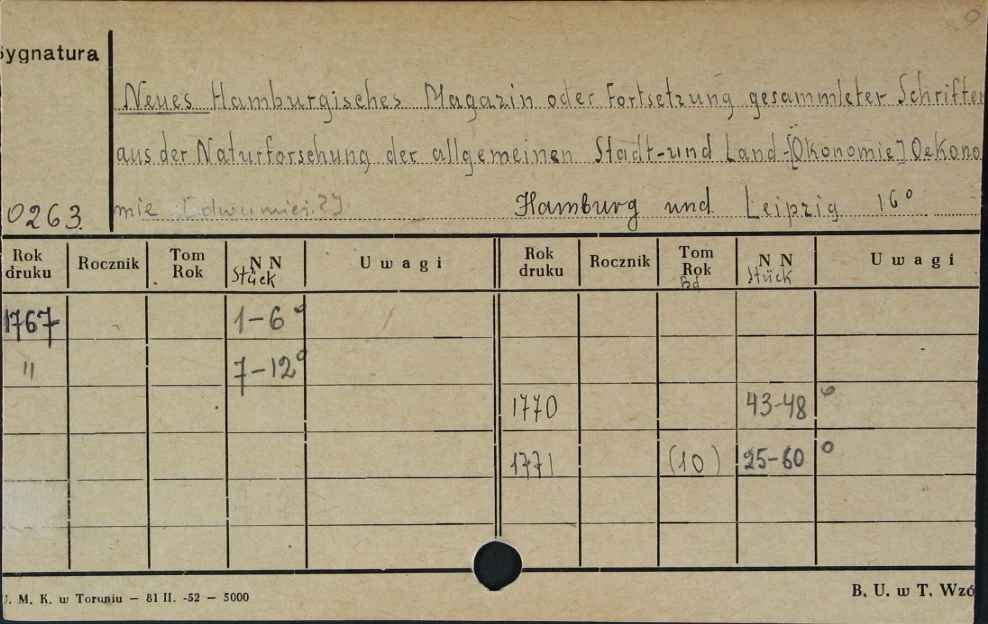 Sygnatura
Neues Hamburgisches Magazin oder Fortsetzung gesammleter Schriften
aus der Naturforschung der allgemeinen Stadt-und Land-[Ökonomie] Oekono
mie [dwumies.?]
0263. Hamburg und Leipzig 16°
Rok druku Rocznik Tom Rok N N Stück Uwagi Rok druku Rocznik Tom Rok Bd N N Stück Uwagi
1767 1-6°
" 7-12°
1770 43-48 °
1771 (10) 25-60 °
U. M. K. w Toruniu — 81 II. -52 — 5000
B. U. w T. Wzó